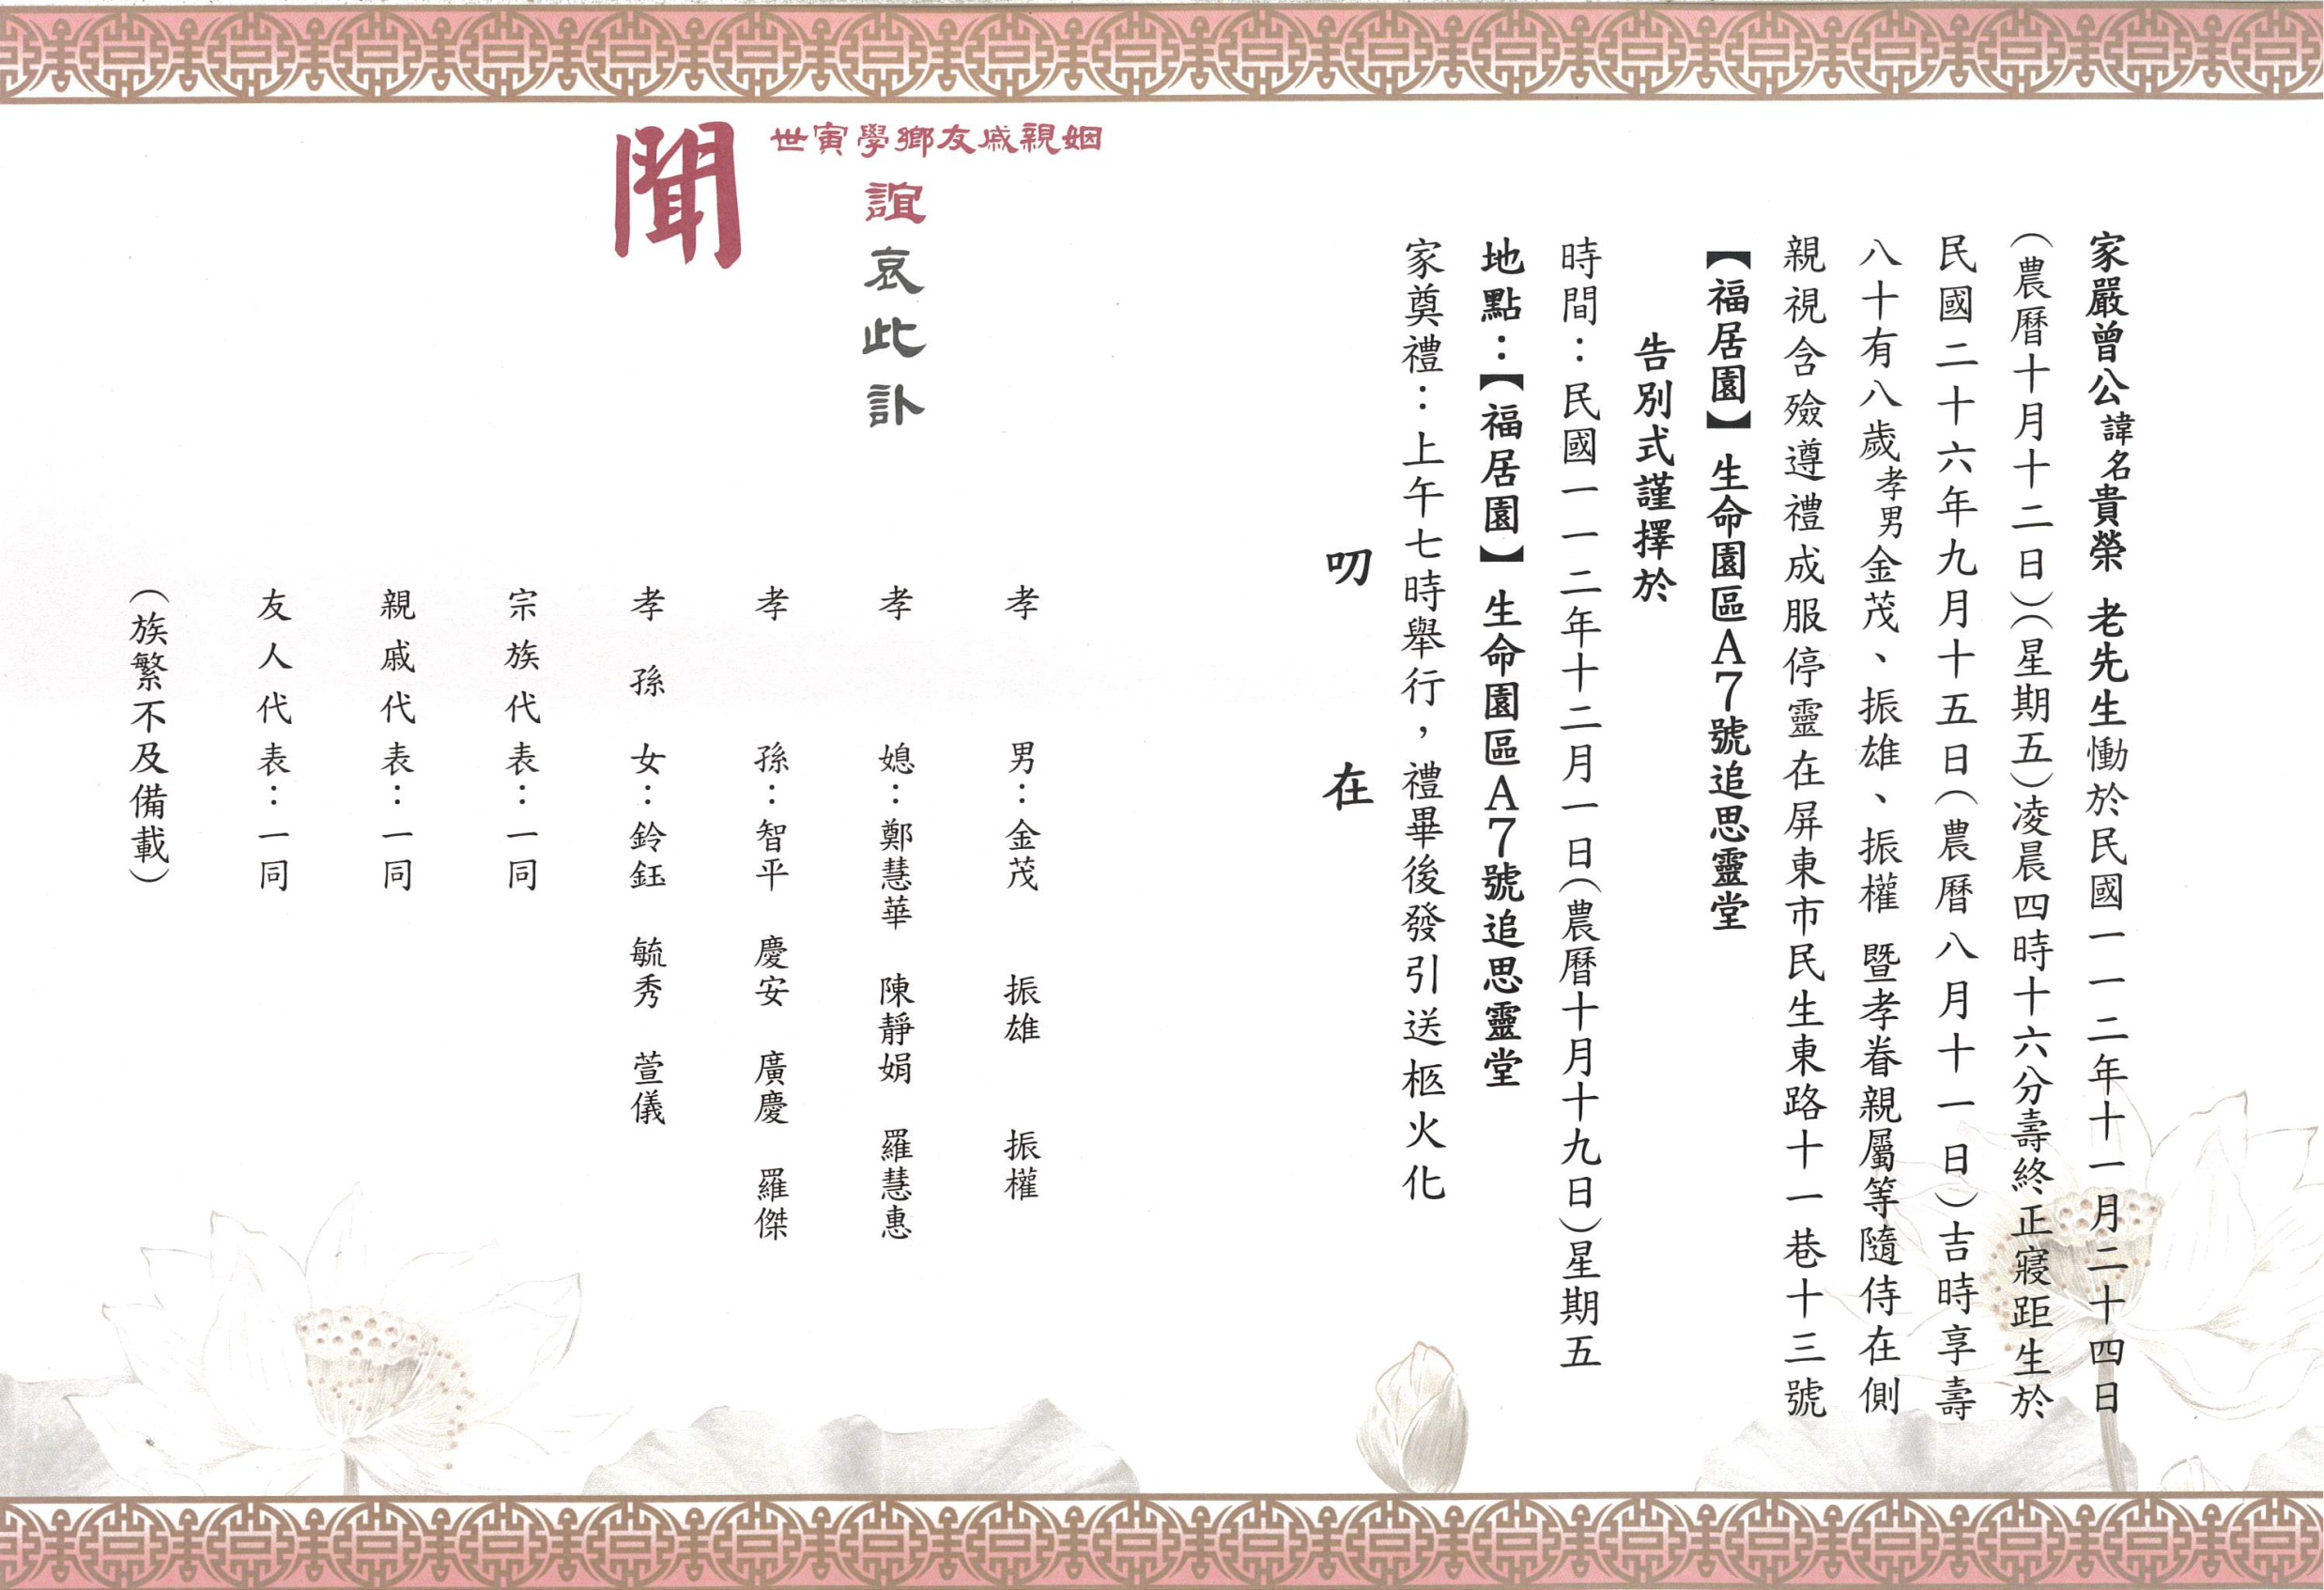 家嚴曾公諱名貴榮 老先生慟於民國一一二年十一月二十四日
(農曆十月十二日)(星期五)凌晨四時十六分壽終正寢距生於
民國二十六年九月十五日(農曆八月十一日)吉時享壽
八十有八歲孝男金茂、振雄、振權 暨孝眷親屬等隨侍在側
親視含殮遵禮成服停靈在屏東市民生東路十一巷十三號
【福居園】生命園區A7號追思靈堂
告別式謹擇於
時間：民國一一二年十二月一日(農曆十月十九日)星期五
地點：【福居園】生命園區A7號追思靈堂
家奠禮：上午七時舉行，禮畢後發引送柩火化
叨 在
姻親戚友鄉學寅世
誼哀此訃
聞
孝 男：金茂 振雄 振權
孝 媳：鄭慧華 陳靜娟 羅慧惠
孝 孫：智平 慶安 廣慶 羅傑
孝 孫 女：鈴鈺 毓秀 萱儀
宗族代表：一同
親戚代表：一同
友人代表：一同
(族繁不及備載)